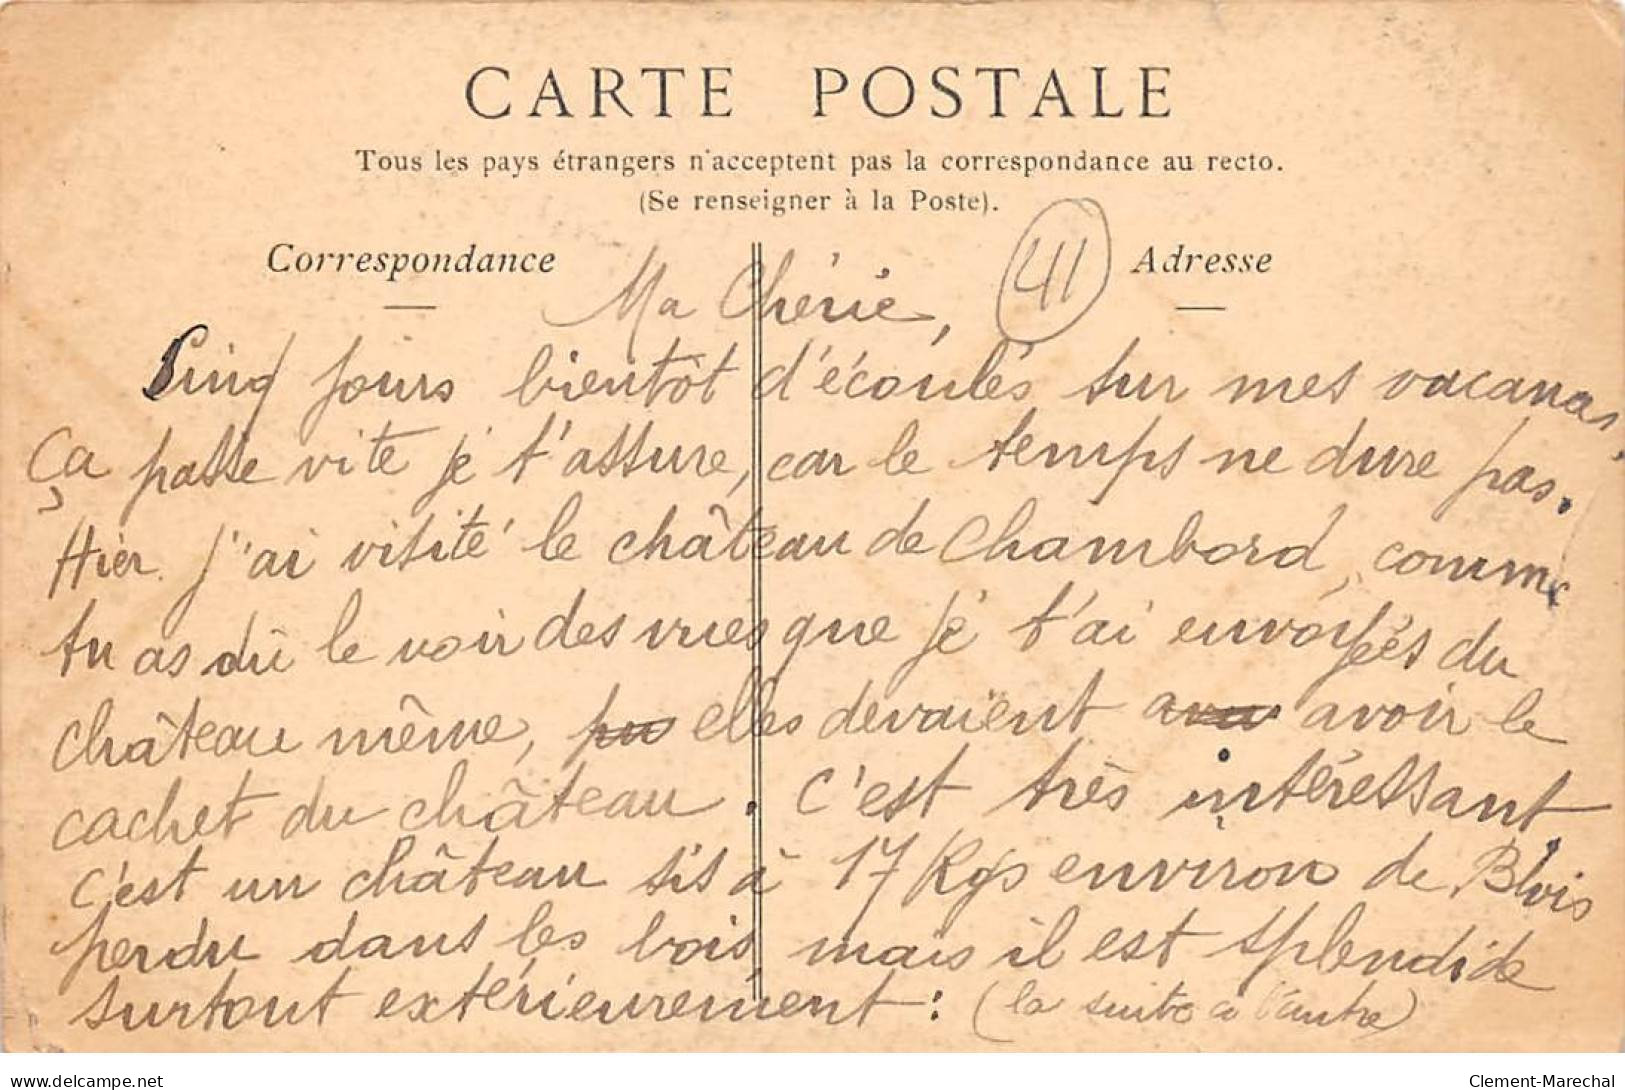 CARTE POSTALE
Tous les pays étrangers n'acceptent pas la correspondance au recto.
(Se renseigner à la Poste).
Correspondance
41
Adresse
Ma Chérie,
Cinq jours bientôt d'écoulés sur mes vacances,
Ça passe vite je t'assure, car le temps ne dure pas.
Hier j'ai visité le château de Chambord, comme
tu as dû le voir des vues que je t'ai envoyées du
château même, elles devaient avoir le
cachet du château. C'est très intéressant,
c'est un château sis à 17 Kgs environ de Blois
perdu dans les bois, mais il est splendide
surtout extérieurement : (la suite à l'autre)
delcampe.net
Clement-Marechal